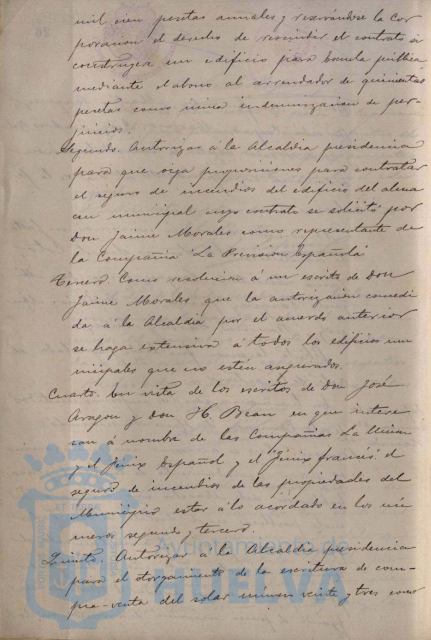 mil cien pesetas anuales y reservándose la Cor
poracion el derecho de rescindir el contrato si
construyera un edificio para Escuela publica
mediante el abono al arrendador de quinientas
pesetas como unica indemnizacion de per-
juicios.
Segundo. Autorizar á la Alcaldia presidencia
para que oiga proposiciones para contratar
el seguro de incendios del edificio del alma
cen municipal cuyo contrato se solicitó por
Don Jaime Morales como representante de
la Compañia "La Prevision Española"
Tercero Como resolucion á un escrito de Don
Jaime Morales que la autorizacion concedi
da á la Alcaldia por el acuerdo anterior
se haga extensiva á todos los edificios mu
nicipales que no estén asegurados.
Cuarto. En vista de los escritos de Don José
Aragon y don H. Bean en que intere
san á nombre de las Compañias La Union
y el Fénix Español y el "Fénix francés" el
seguro de incendios de las propiedades del
Municipio estar á lo acordado en los nú
meros segundo y tercero.
Quinto. Autorizar á la Alcaldia presidencia
para el otorgamiento de la escritura de com-
pra-venta del solar número veinte y tres como
Ayuntamiento de
HUELVA